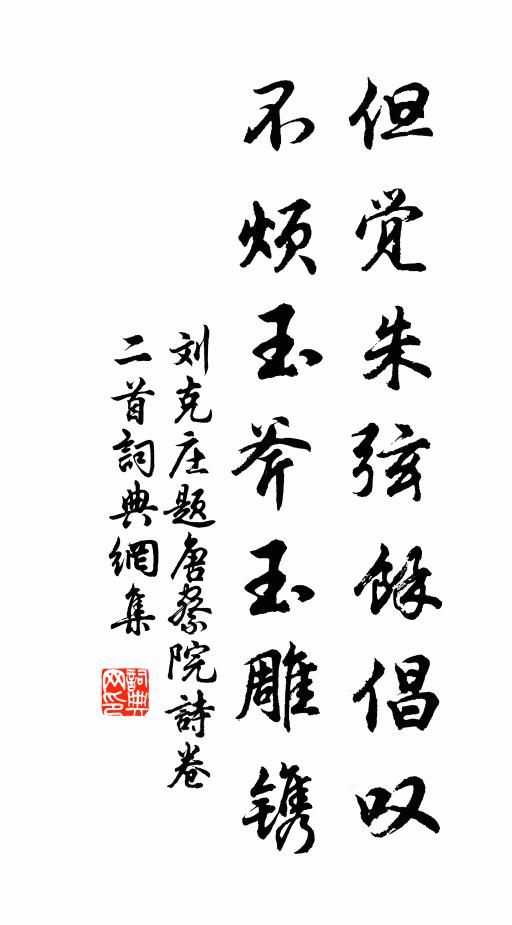 但觉朱弦馀倡叹
不烦玉斧玉雕镌
刘克庄题唐察院詩卷
二首詞典網集
詞典网印